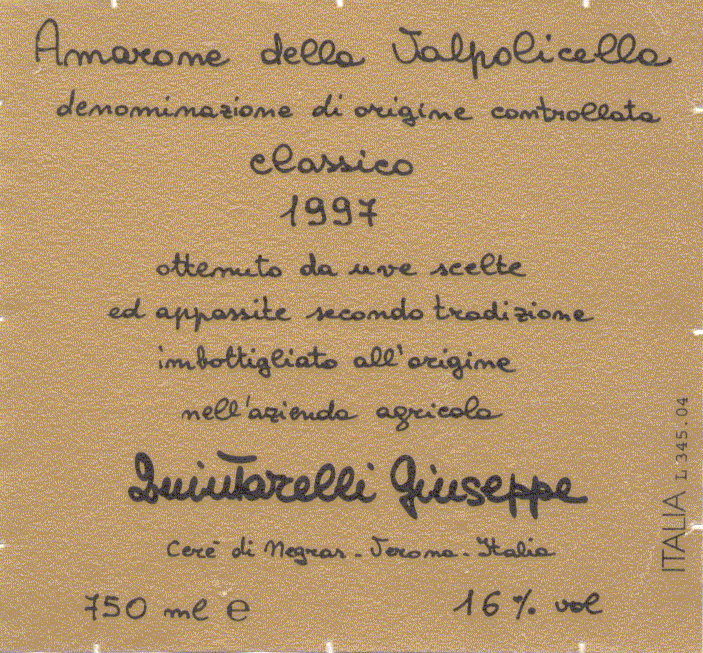 Amarone della Valpolicella
denominazione di origine controllata
classico
1997
ottenuto da uve scelte
ed appassite secondo tradizione
imbottigliato all'origine
nell'azienda agricola
Quintarelli Giuseppe
Cerè di Negrar - Verona - Italia
750 ml e
16% vol
ITALIA L 345.04